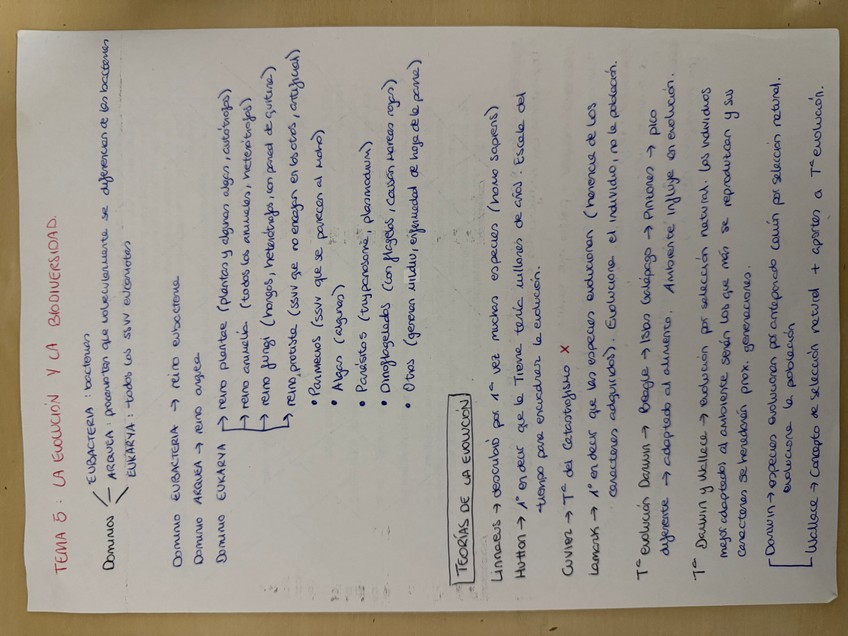 TEMA 5: LA EVOLUCIÓN Y LA BIODIVERSIDAD.
Dominios
EUBACTERIA: bacterias
ARQUEA: procariotas que molecularmente se diferencian de las bacterias
EUKARYA: todos los ssvv eucariotas
Dominio EUBACTERIA → reino eubacteria
Dominio ARQUEA → reino arquea
Dominio EUKARYA → reino plantae (plantas y algunas algas, autótrofas)
→ reino animalia (todos los animales, heterótrofos)
→ reino fungi (hongos, heterótrofos, con pared de quitina)
→ reino protista (ssvv que no encajan en los otros, artificial)
• Paramecios (ssvv que se parecen al moho)
• Algas (algunas)
• Parásitos (trypanosoma, plasmodium)
• Dinoflagelados (con flagelos, causan mareas rojas)
• Otros (generan mildiu, enfermedad de hoja de la parra)
TEORÍAS DE LA EVOLUCIÓN
Linnaeus → describió por 1ª vez muchas especies (homo sapiens)
Hutton → 1º en decir que la Tierra tenía millones de años: Escala del
tiempo para encuadrar la evolución.
Cuvier → Tª del Catastrofismo X
Lamarck → 1º en decir que las especies evolucionan (herencia de los
caracteres adquiridos). Evoluciona el individuo, no la población.
Tª evolución Darwin → Beagle → Islas Galápago → Pinzones → pico
diferente → adaptado al alimento. Ambiente influye en evolución.
Tª Darwin y Wallace → evolución por selección natural. Los individuos
mejor adaptados al ambiente serán los que más se reproduzcan y sus
caracteres se heredarán prox. generaciones.
Darwin → especies evolucionan por antepasado común por selección natural.
evoluciona la población
Wallace → Concepto de selección natural + aportes a Tª evolución.